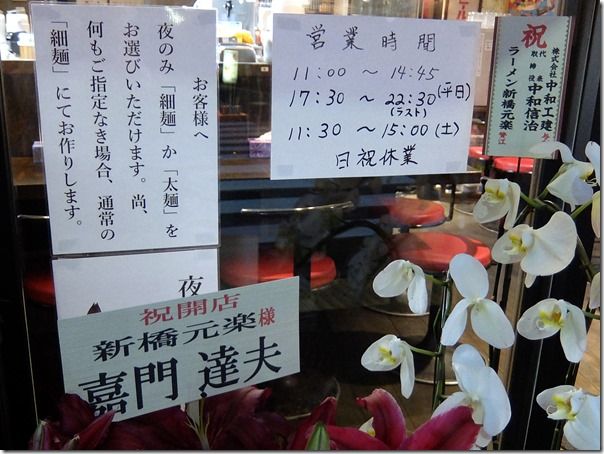 お客様へ
夜のみ「細麺」か「太麺」を
お選びいただけます。尚、
何もご指定なき場合、通常の
「細麺」にてお作りします。
営業時間
11:00 ～ 14:45
17:30 ～ 22:30(平日)
(ラスト)
11:30 ～ 15:00(土)
日祝休業
祝
株式会社 中和工建
代表取締役 中和信治
ラーメン新橋元楽
賛江
夜
祝開店
新橋元楽様
嘉門 達夫